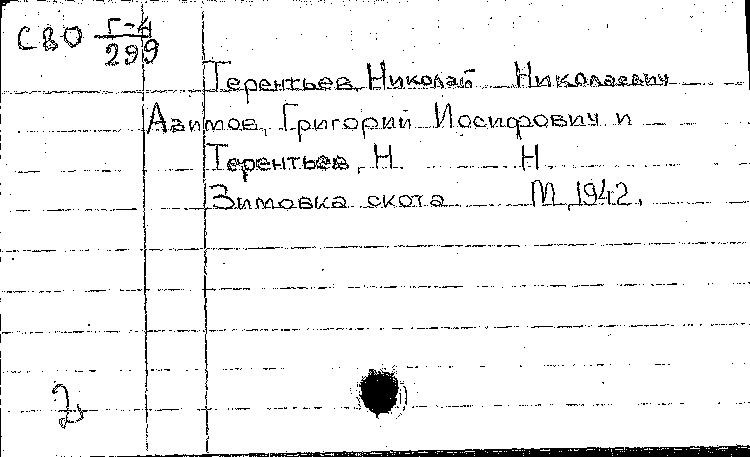 СВО Г-4
299
Терентьев, Николай Николаевич
Азимов, Григорий Иосифович и
Терентьев, Н. Н.
Зимовка скота М, 1942.